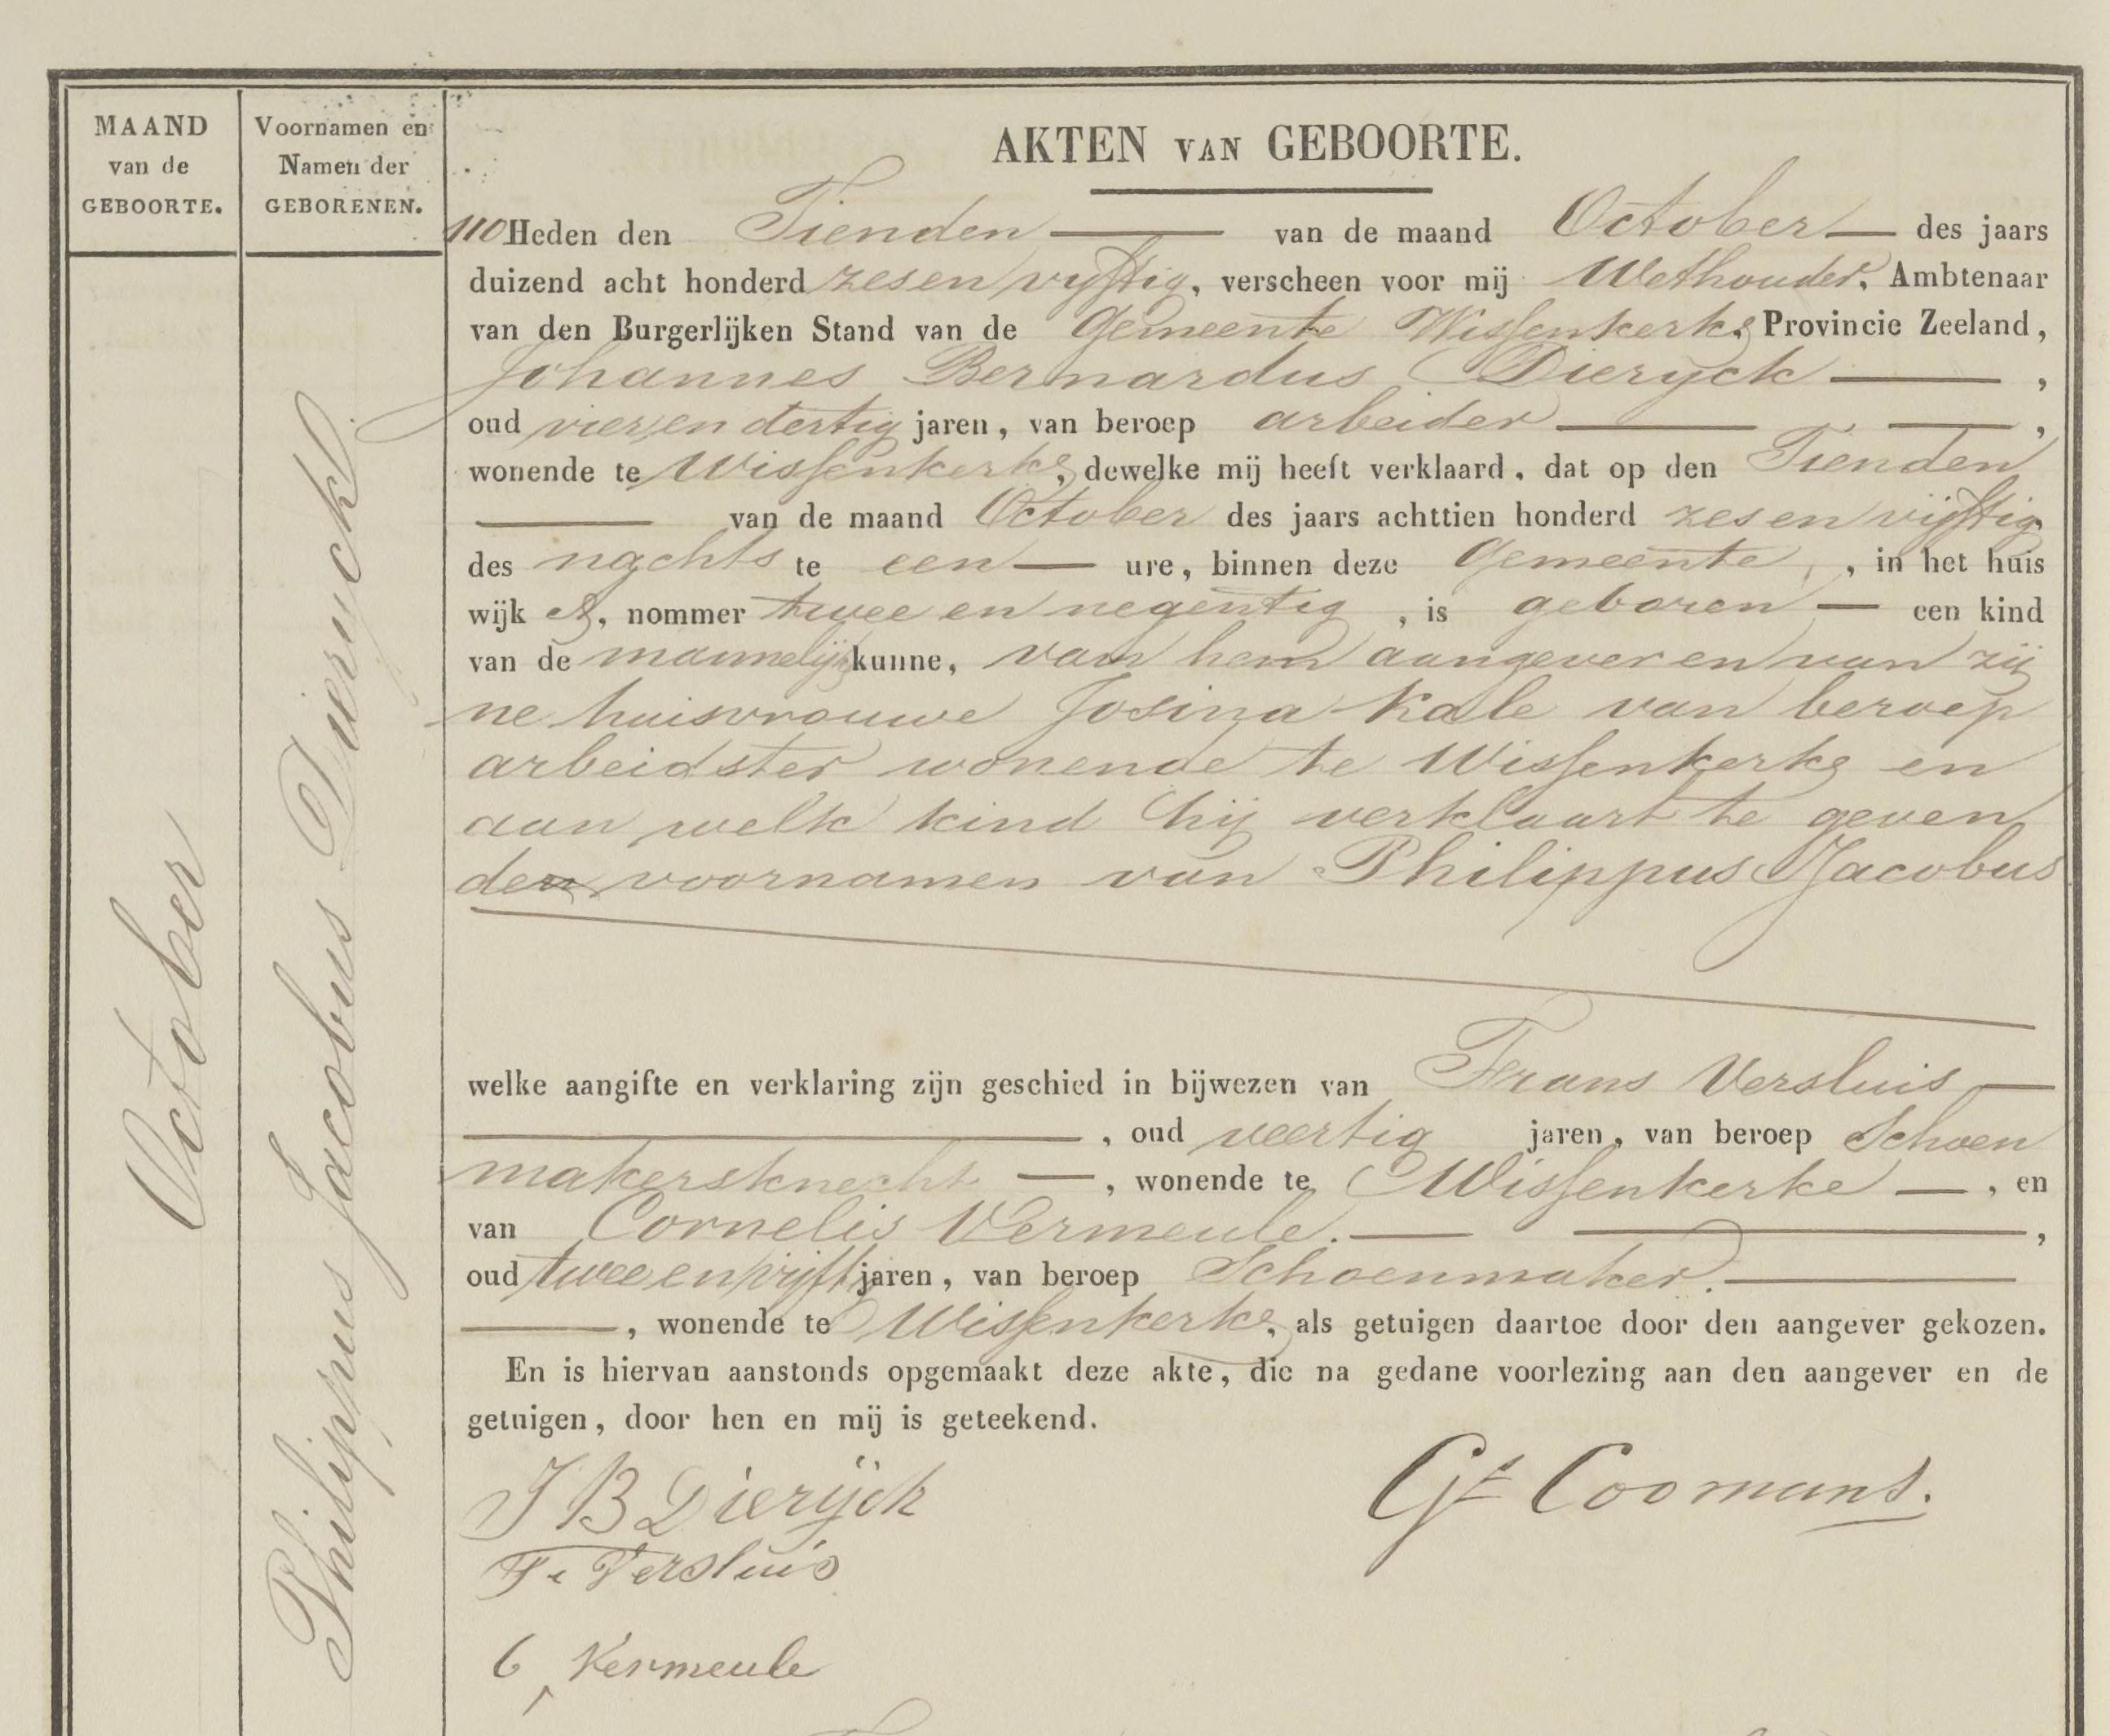 MAAND
van de
GEBOORTE.
Voornamen en
Namen der
GEBORENEN.
October
Philippus Jacobus Dieryck
AKTEN VAN GEBOORTE.
110 Heden den Tienden — van de maand October — des jaars
duizend acht honderd zesen vyftig, verscheen voor mij Wethouder, Ambtenaar
van den Burgerlijken Stand van de Gemeente Wissenkerke, Provincie Zeeland,
Johannes Bernardus Dieryck — ,
oud vier en dertig jaren, van beroep arbeider — — ,
wonende te Wissenkerke, dewelke mij heeft verklaard, dat op den Tienden
— van de maand October des jaars achttien honderd zes en vijftig
des nachts te een — ure, binnen deze Gemeente, , in het huis
wijk A, nommer twee en negentig , is geboren — een kind
van de mannelijk kunne, van hem aangever en van zij
ne huisvrouwe Josina Kale van beroep
arbeidster wonende te Wissenkerke en
aan welk kind hij verklaart te geven
den voornamen van Philippus Jacobus
welke aangifte en verklaring zijn geschied in bijwezen van Frans Versluis —
— , oud veertig jaren, van beroep Schoen
makersknecht — , wonende te Wissenkerke — , en
van Cornelis Vermeule. — — ,
oud twee en vijftig jaren, van beroep Schoenmaker. —
— , wonende te Wissenkerke, als getuigen daartoe door den aangever gekozen.
En is hiervan aanstonds opgemaakt deze akte, die na gedane voorlezing aan den aangever en de
getuigen, door hen en mij is geteekend.
J B Dierÿck
Gt Coomans.
F. Versluis
C Vermeule